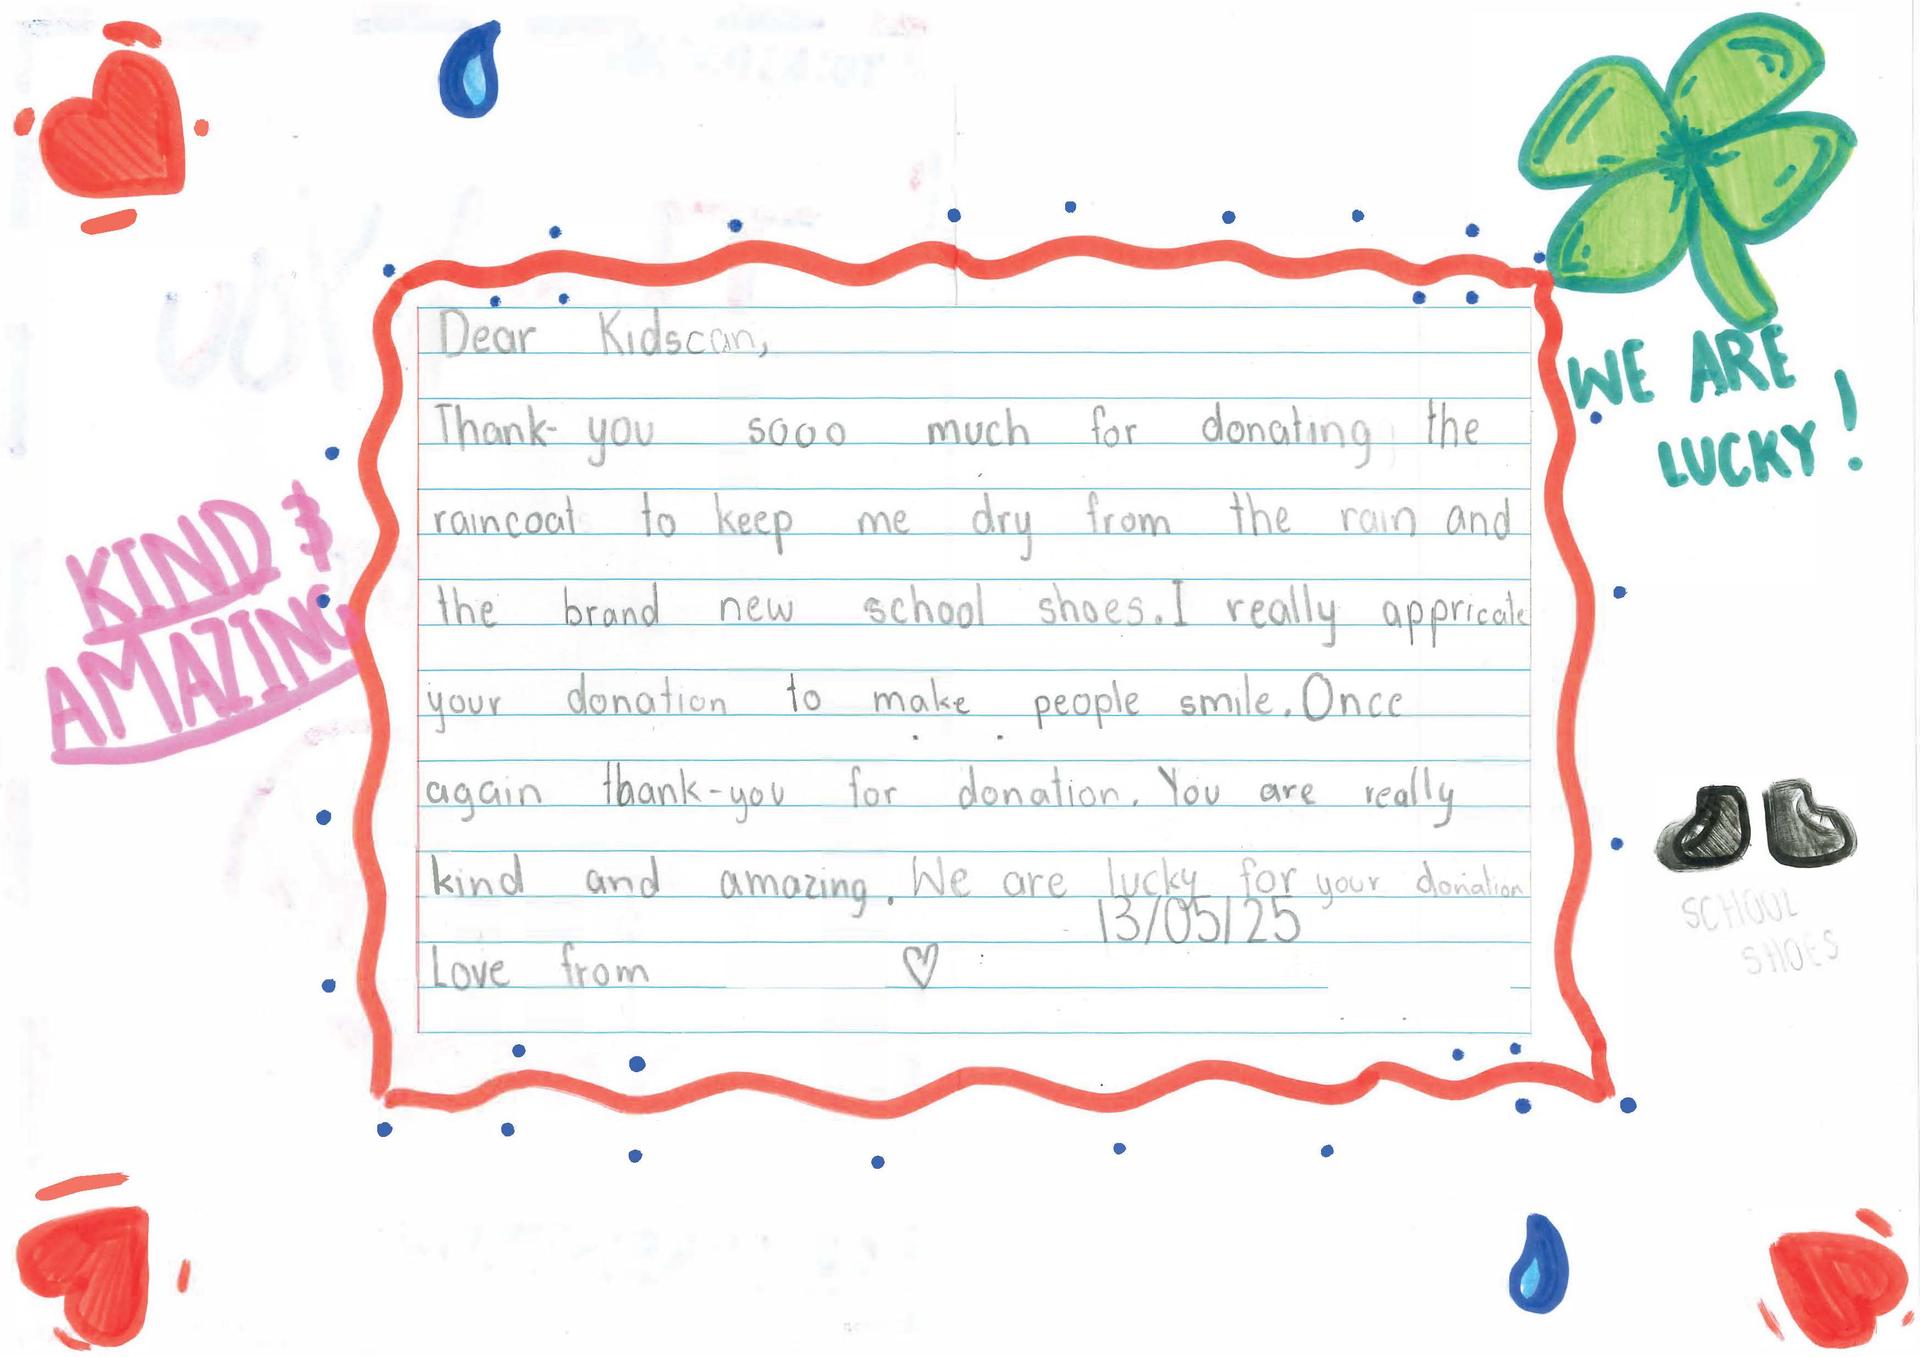 Dear Kidscan,
Thank-you sooo much for donating the
raincoat to keep me dry from the rain and
the brand new school shoes. I really appricate
your donation to make people smile. Once
again thank-you for donation. You are really
kind and amazing. We are lucky for your donation
13/05/25
Love from ♡
KIND &
AMAZING
WE ARE
LUCKY!
SCHOOL
SHOES